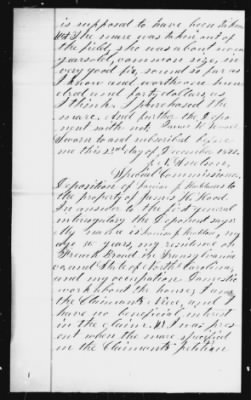 is supposed to have been taken
The mare was taken out of
the field, she was about
years old, common size, in
very good fix, sound so far as
I know and worth one hun
dred and forty dollars, as
I think. I purchased the
mare. And further the Depo
nent saith not.
Sworn to and subscribed before
me this 23rd day of December 1871
Special Commissioner
Deposition of
the property of James H. Wood
In answer to the first general
interrogatory the Deponent says
My name is my
age 18 years, my residence on
French Broad in Transylvania
co and State of North Carolina,
and my occupation Domestic
work about the house, I am
the Claimants Niece, and I
have no beneficial interest
in the claim. I was pres
ent when the mare specified
in the Claimants petition